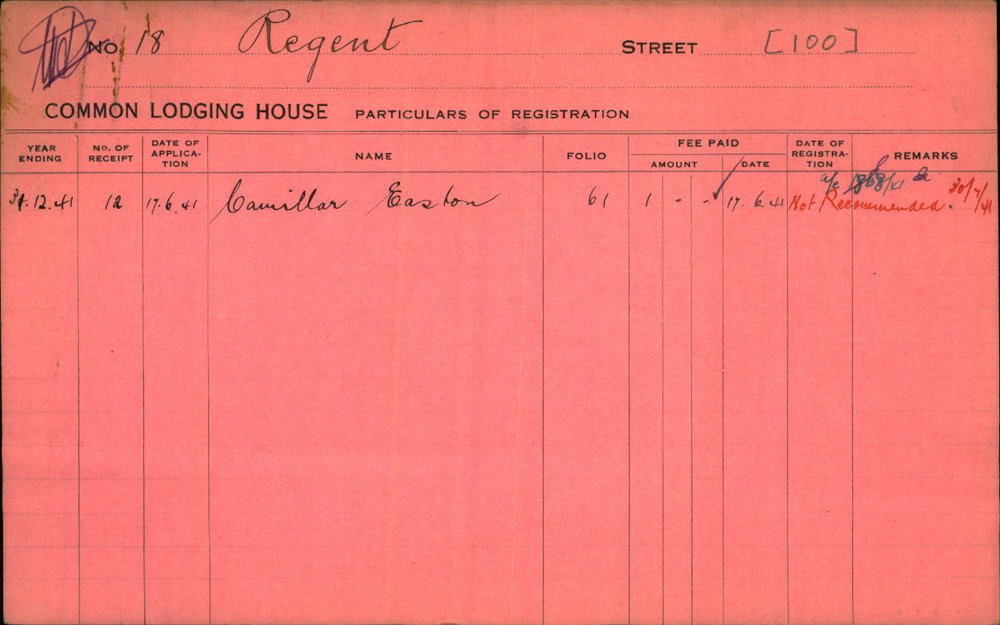 No. 18 Regent STREET [100]
COMMON LODGING HOUSE PARTICULARS OF REGISTRATION
YEAR ENDING
No. OF RECEIPT
DATE OF APPLICA-TION
NAME
FOLIO
FEE PAID
AMOUNT
DATE
DATE OF REGISTRA-TION
REMARKS
a/c 1868/41
31.12.41 12 17.6.41 Camillar Easton 61 1 - - ✓ 17.6.41 Not Recommended. 30/7/41